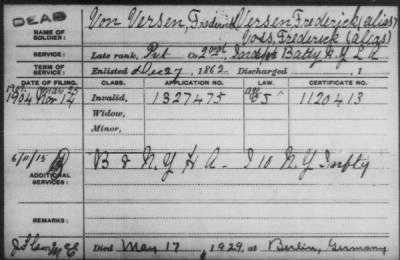 DEAD
NAME OF SOLDIER:
Von Versen, Frederick Versen Frederick (alias)
Voss, Frederick (alias)
SERVICE:
Late rank, Pvt Co 2nd Indept Batty N.Y. L A
TERM OF SERVICE:
Enlisted Dec 27, 1862 Discharged , 1
DATE OF FILING. CLASS. APPLICATION NO. CERTIFICATE NO.
1904 Nov 14 Invalid, 1327475 1120413
Widow,
Minor,
6/11/15
ADDITIONAL SERVICES:
B & N.Y H A - I 10 N.Y Infty
REMARKS:
Died May 17, 1929, at Berlin, Germany